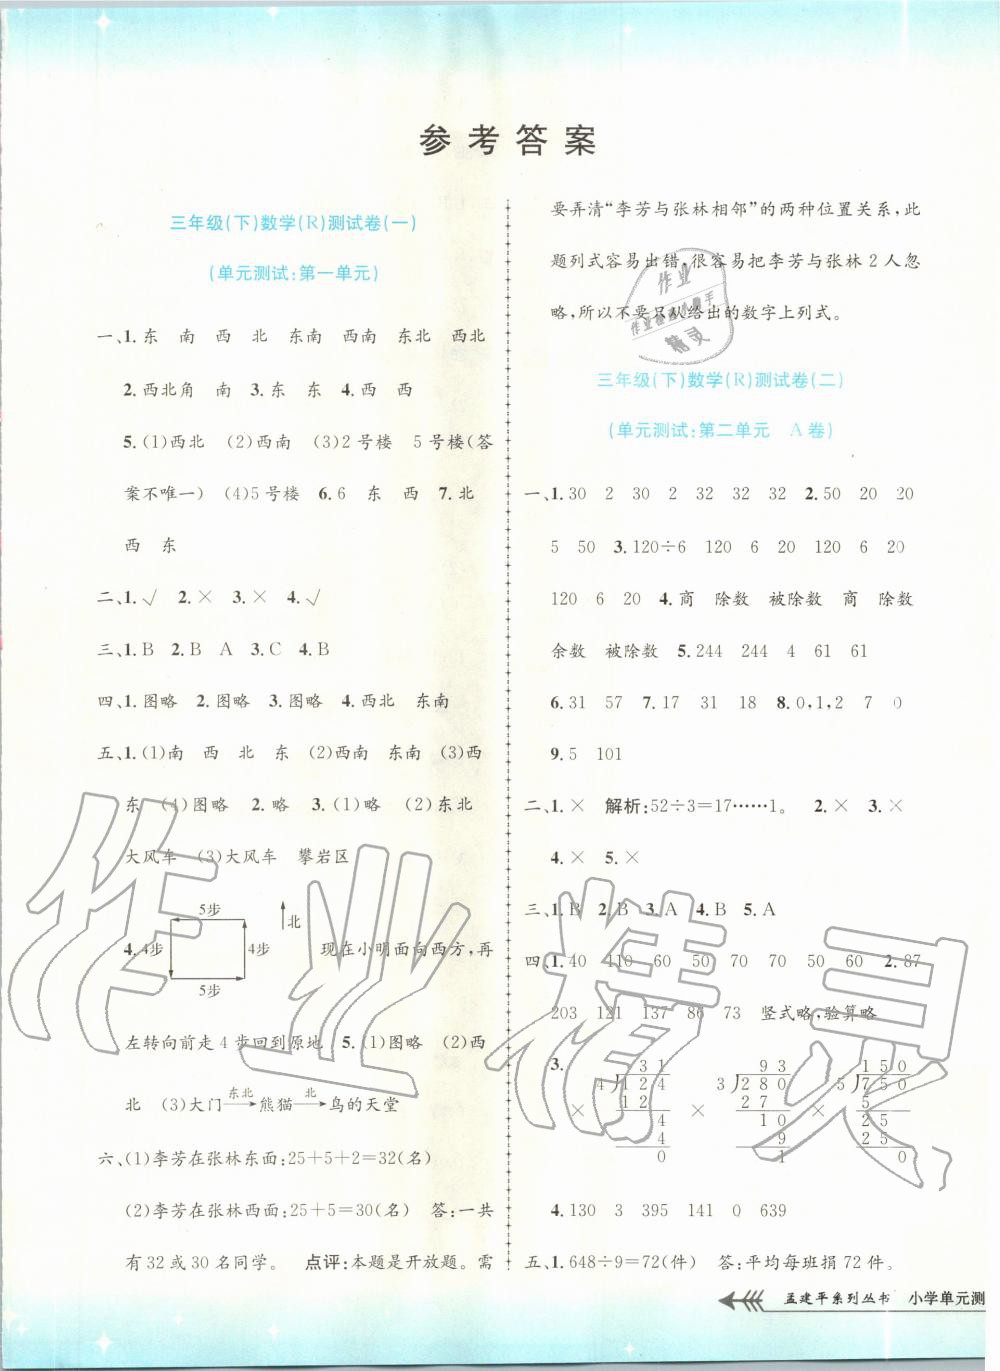 参考答案
三年级(下)数学(R)测试卷(一)
(单元测试:第一单元)
一、1.东 南 西 北 东南 西南 东北 西北
2.西北角 南 3.东 东 4.西 西
5.(1)西北 (2)西南 (3)2号楼 5号楼(答
案不唯一) (4)5号楼 6.6 东 西 7.北
西 东
二、1.√ 2.× 3.× 4.√
三、1.B 2.B A 3.C 4.B
四、1.图略 2.图略 3.图略 4.西北 东南
五、1.(1)南 西 北 东 (2)西南 东南 (3)西
东 (4)图略 2.略 3.(1)略 (2)东北
大风车 (3)大风车 攀岩区
5步
北
4. 4步 4步 现在小明面向西方,再
5步
左转向前走4步回到原地 5.(1)图略 (2)西
北 (3)大门 东北 熊猫 北 鸟的天堂
六、(1)李芳在张林东面:25+5+2=32(名)
(2)李芳在张林西面:25+5=30(名) 答:一共
有32或30名同学。 点评:本题是开放题。需
要弄清“李芳与张林相邻”的两种位置关系,此
题列式容易出错,很容易把李芳与张林2人忽
略,所以不要只从给出的数字上列式。
作业
精灵
三年级(下)数学(R)测试卷(二)
(单元测试:第二单元 A卷)
一、1.30 2 30 2 32 32 32 2.50 20 20
5 50 3.120÷6 120 6 20 120 6 20
120 6 20 4.商 除数 被除数 商 除数
余数 被除数 5.244 244 4 61 61
6.31 57 7.17 31 18 8.0,1,2 7 0
9.5 101
二、1.× 解析:52÷3=17……1。 2.× 3.×
4.× 5.×
三、1.B 2.B 3.A 4.B 5.A
四、1.40 110 60 50 70 70 50 60 2.87
203 121 137 86 73 竖式略,验算略
3. 31 93 150
× 4)124 × 3)280 × 5)750
12 27 5
4 10 25
4 9 25
0 1 0
4.130 3 395 141 0 639
五、1.648÷9=72(件) 答:平均每班捐72件。
孟建平系列丛书 小学单元测
作业精灵